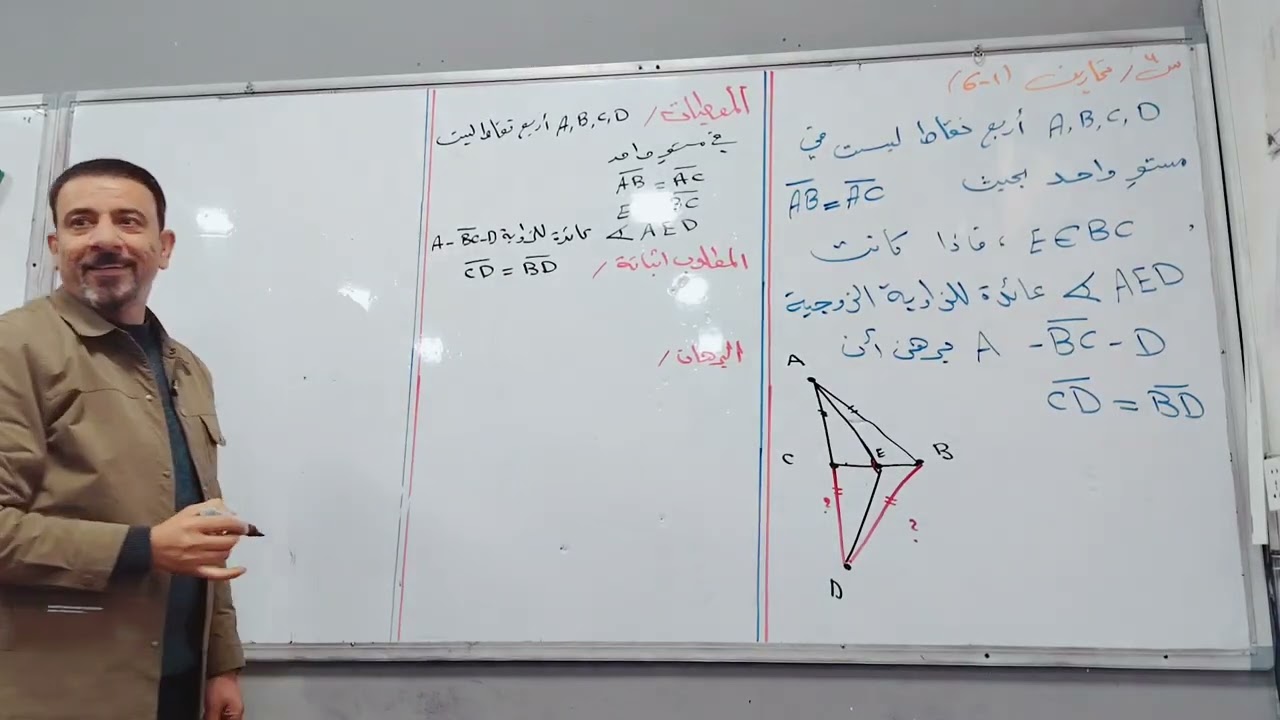 س٦/ تمارين (1-6)
A,B,C,D أربع نقاط ليست في
مستوٍ واحد بحيث AB = AC
E∈BC ، فاذا كانت
∢ AED عائدة للزاوية الزوجية
A - BC - D برهن أن
CD = BD
A
C
E
B
?
?
D
المعطيات / A,B,C,D أربع نقاط ليست
في مستوٍ واحد
AB = AC
E BC
∢ AED عائدة للزاوية A-BC-D
المطلوب اثباته / CD = BD
البرهان /